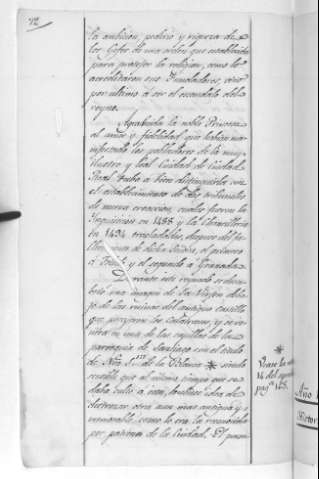 72
la ambicion, poderio y riqueza de
los Gefes de una orden que establecida
para proteger la religion, como lo
acreditaron sus Fundadores, vino
por ultimo a ser el escandalo del
reyno.
Agradecida la noble Princesa
al amor y fidelidad que habian ma-
nifestado los pobladores de la muy
ilustre y leal Ciudad de Ciudad
Real tubo a bien distinguirla con
el establecimiento de dos tribunales
de nueva creacion, cuales fueron la
Inquisicion en 1483 y la Chancilleria
en 1494 trasladados, despues del fa-
llecimiento de dicha Señora, el primero
a Toledo y el segundo a Granada.
Durante este reynado se descu-
brio una imagen de la Virgen deba-
jo de las ruinas del antiguo castillo
que ocuparon los Calatravos, y se ve-
nera en una de las capillas de la
parroquia de Santiago con el titulo
de Ntra. Sra. de la Blanca * siendo
sensible que al mismo tiempo que se
daba culto a esta, hubiese idea de
destronar otra aun mas antigua y
venerable como lo era la reconocida
por patrona de la Ciudad. El
* Vease la
14 del
pag.
Año
Histor